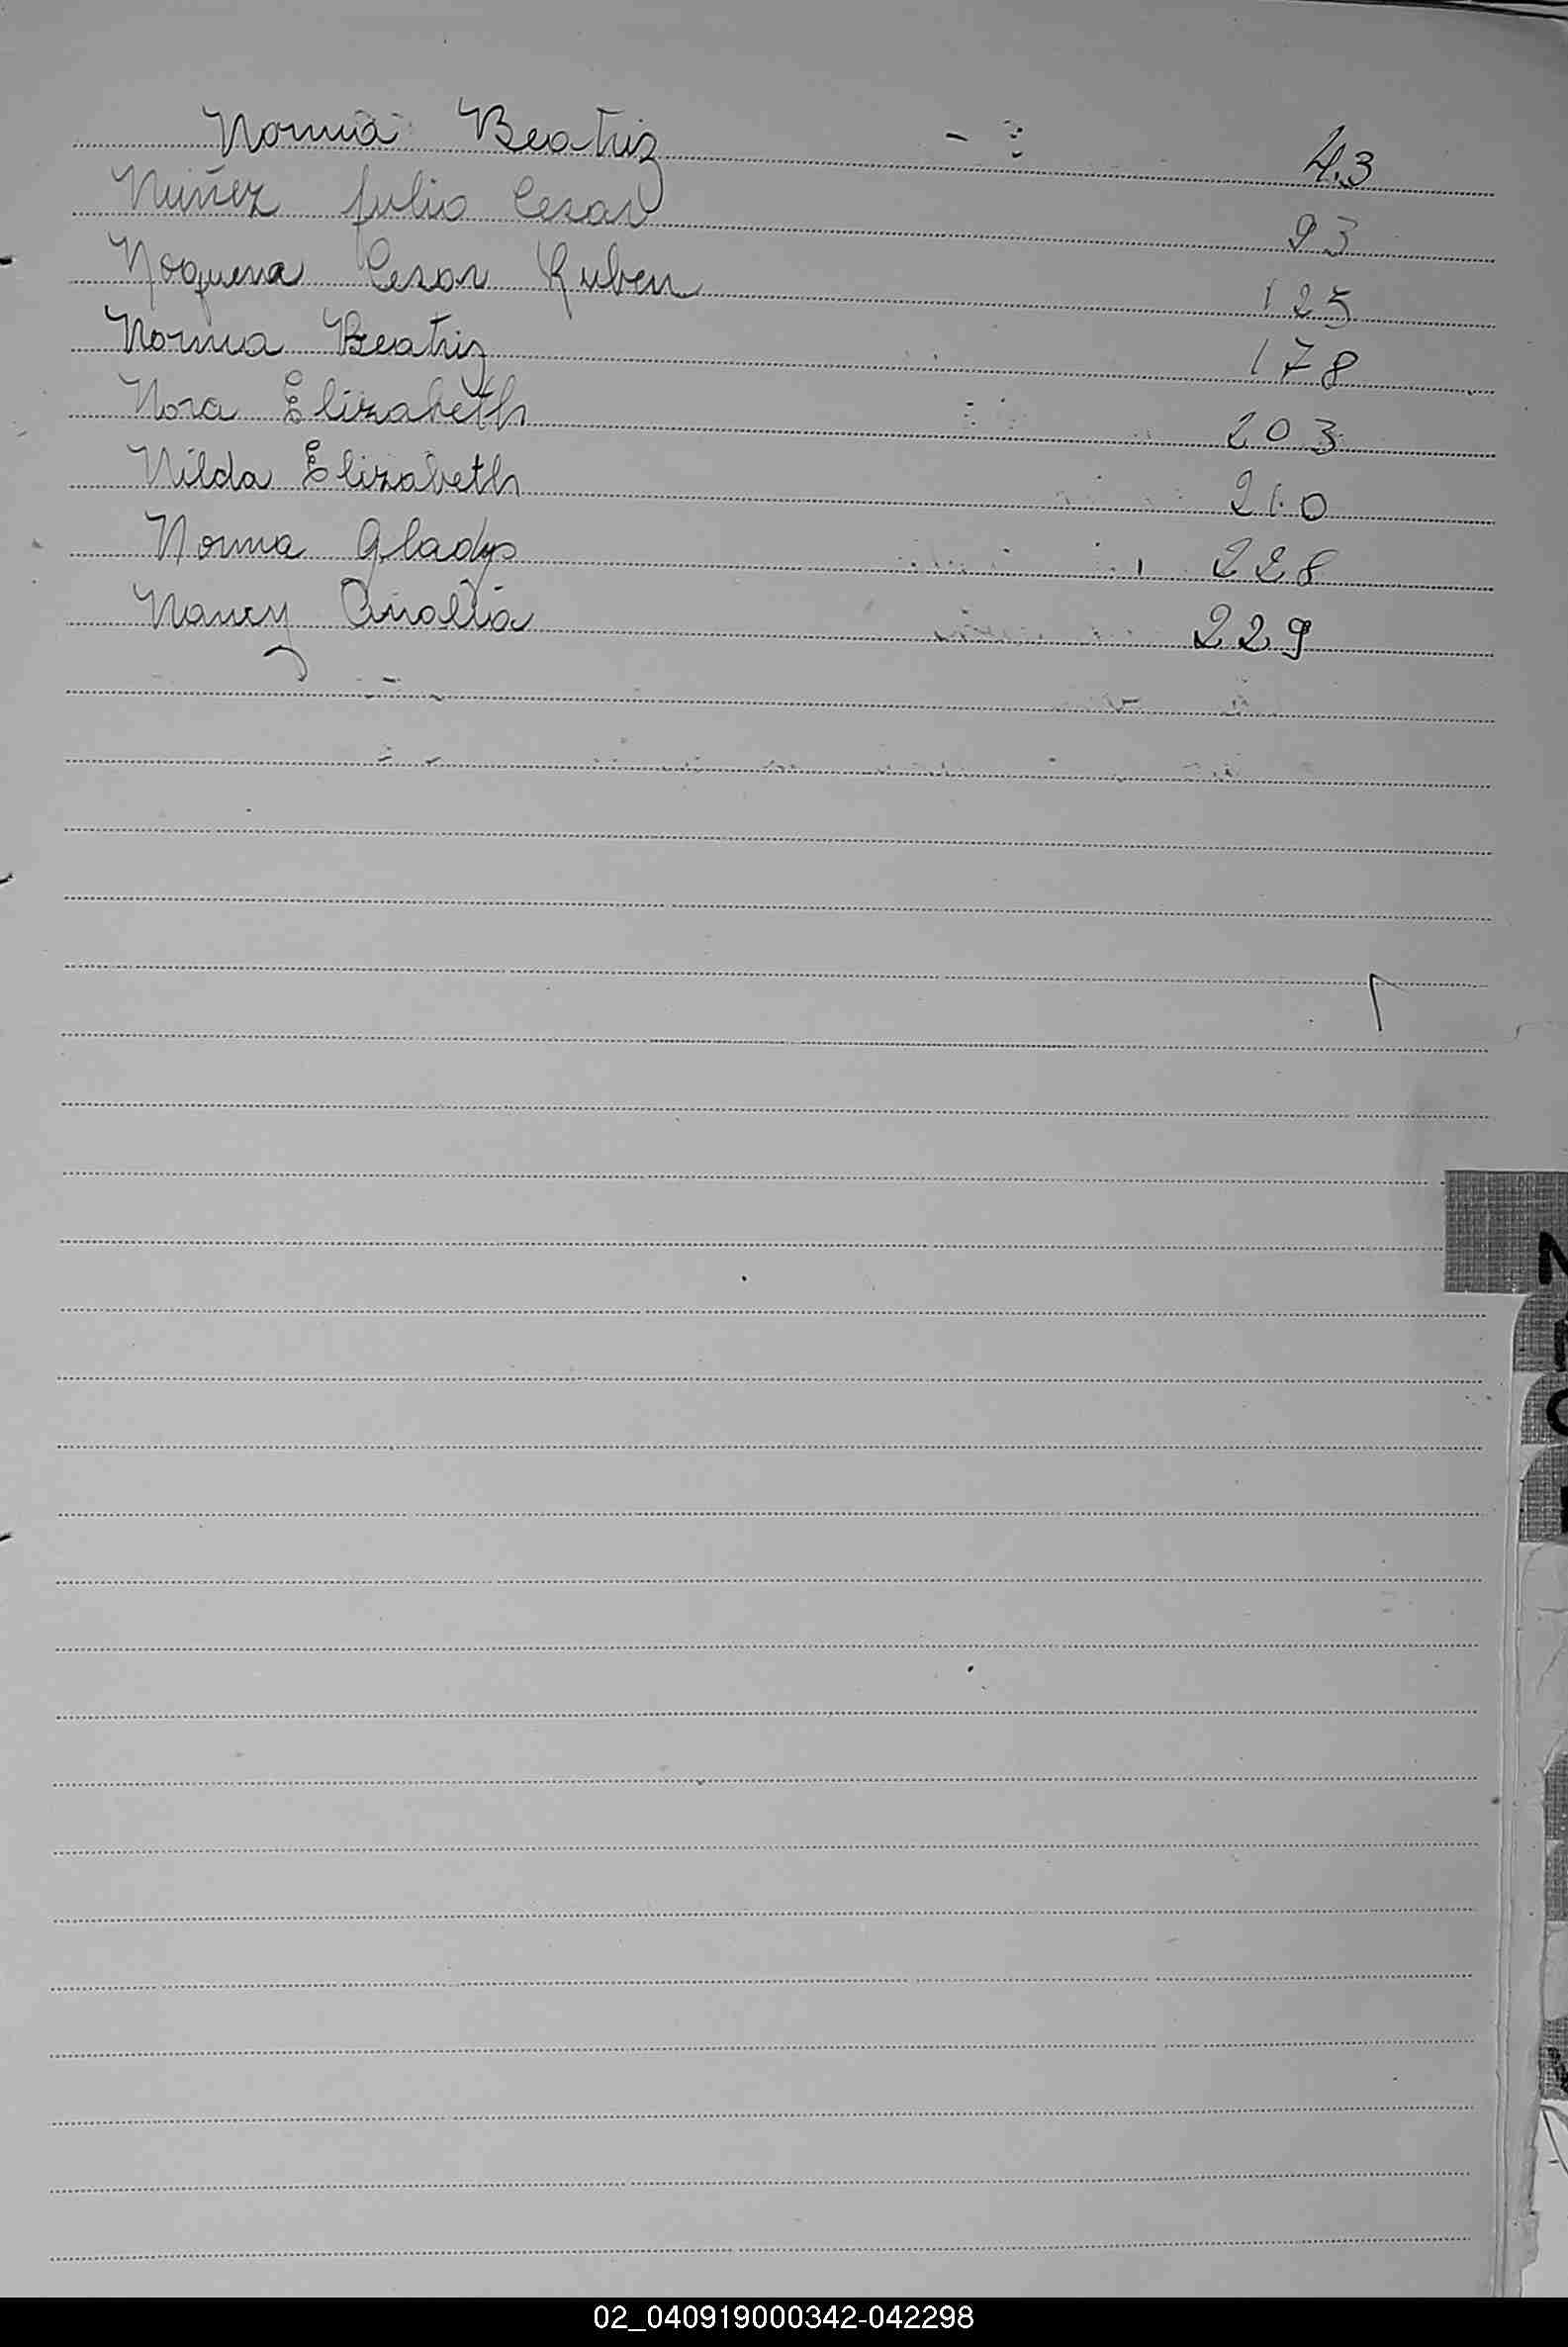 Norma Beatriz 43
Nuñez Julio Cesar 93
Noguera Cesar Ruben 125
Norma Beatriz 178
Nora Elizabeth 203
Nilda Elizabeth 210
Norma Gladys 228
Nancy Analia 229
N
O
02_040919000342-042298